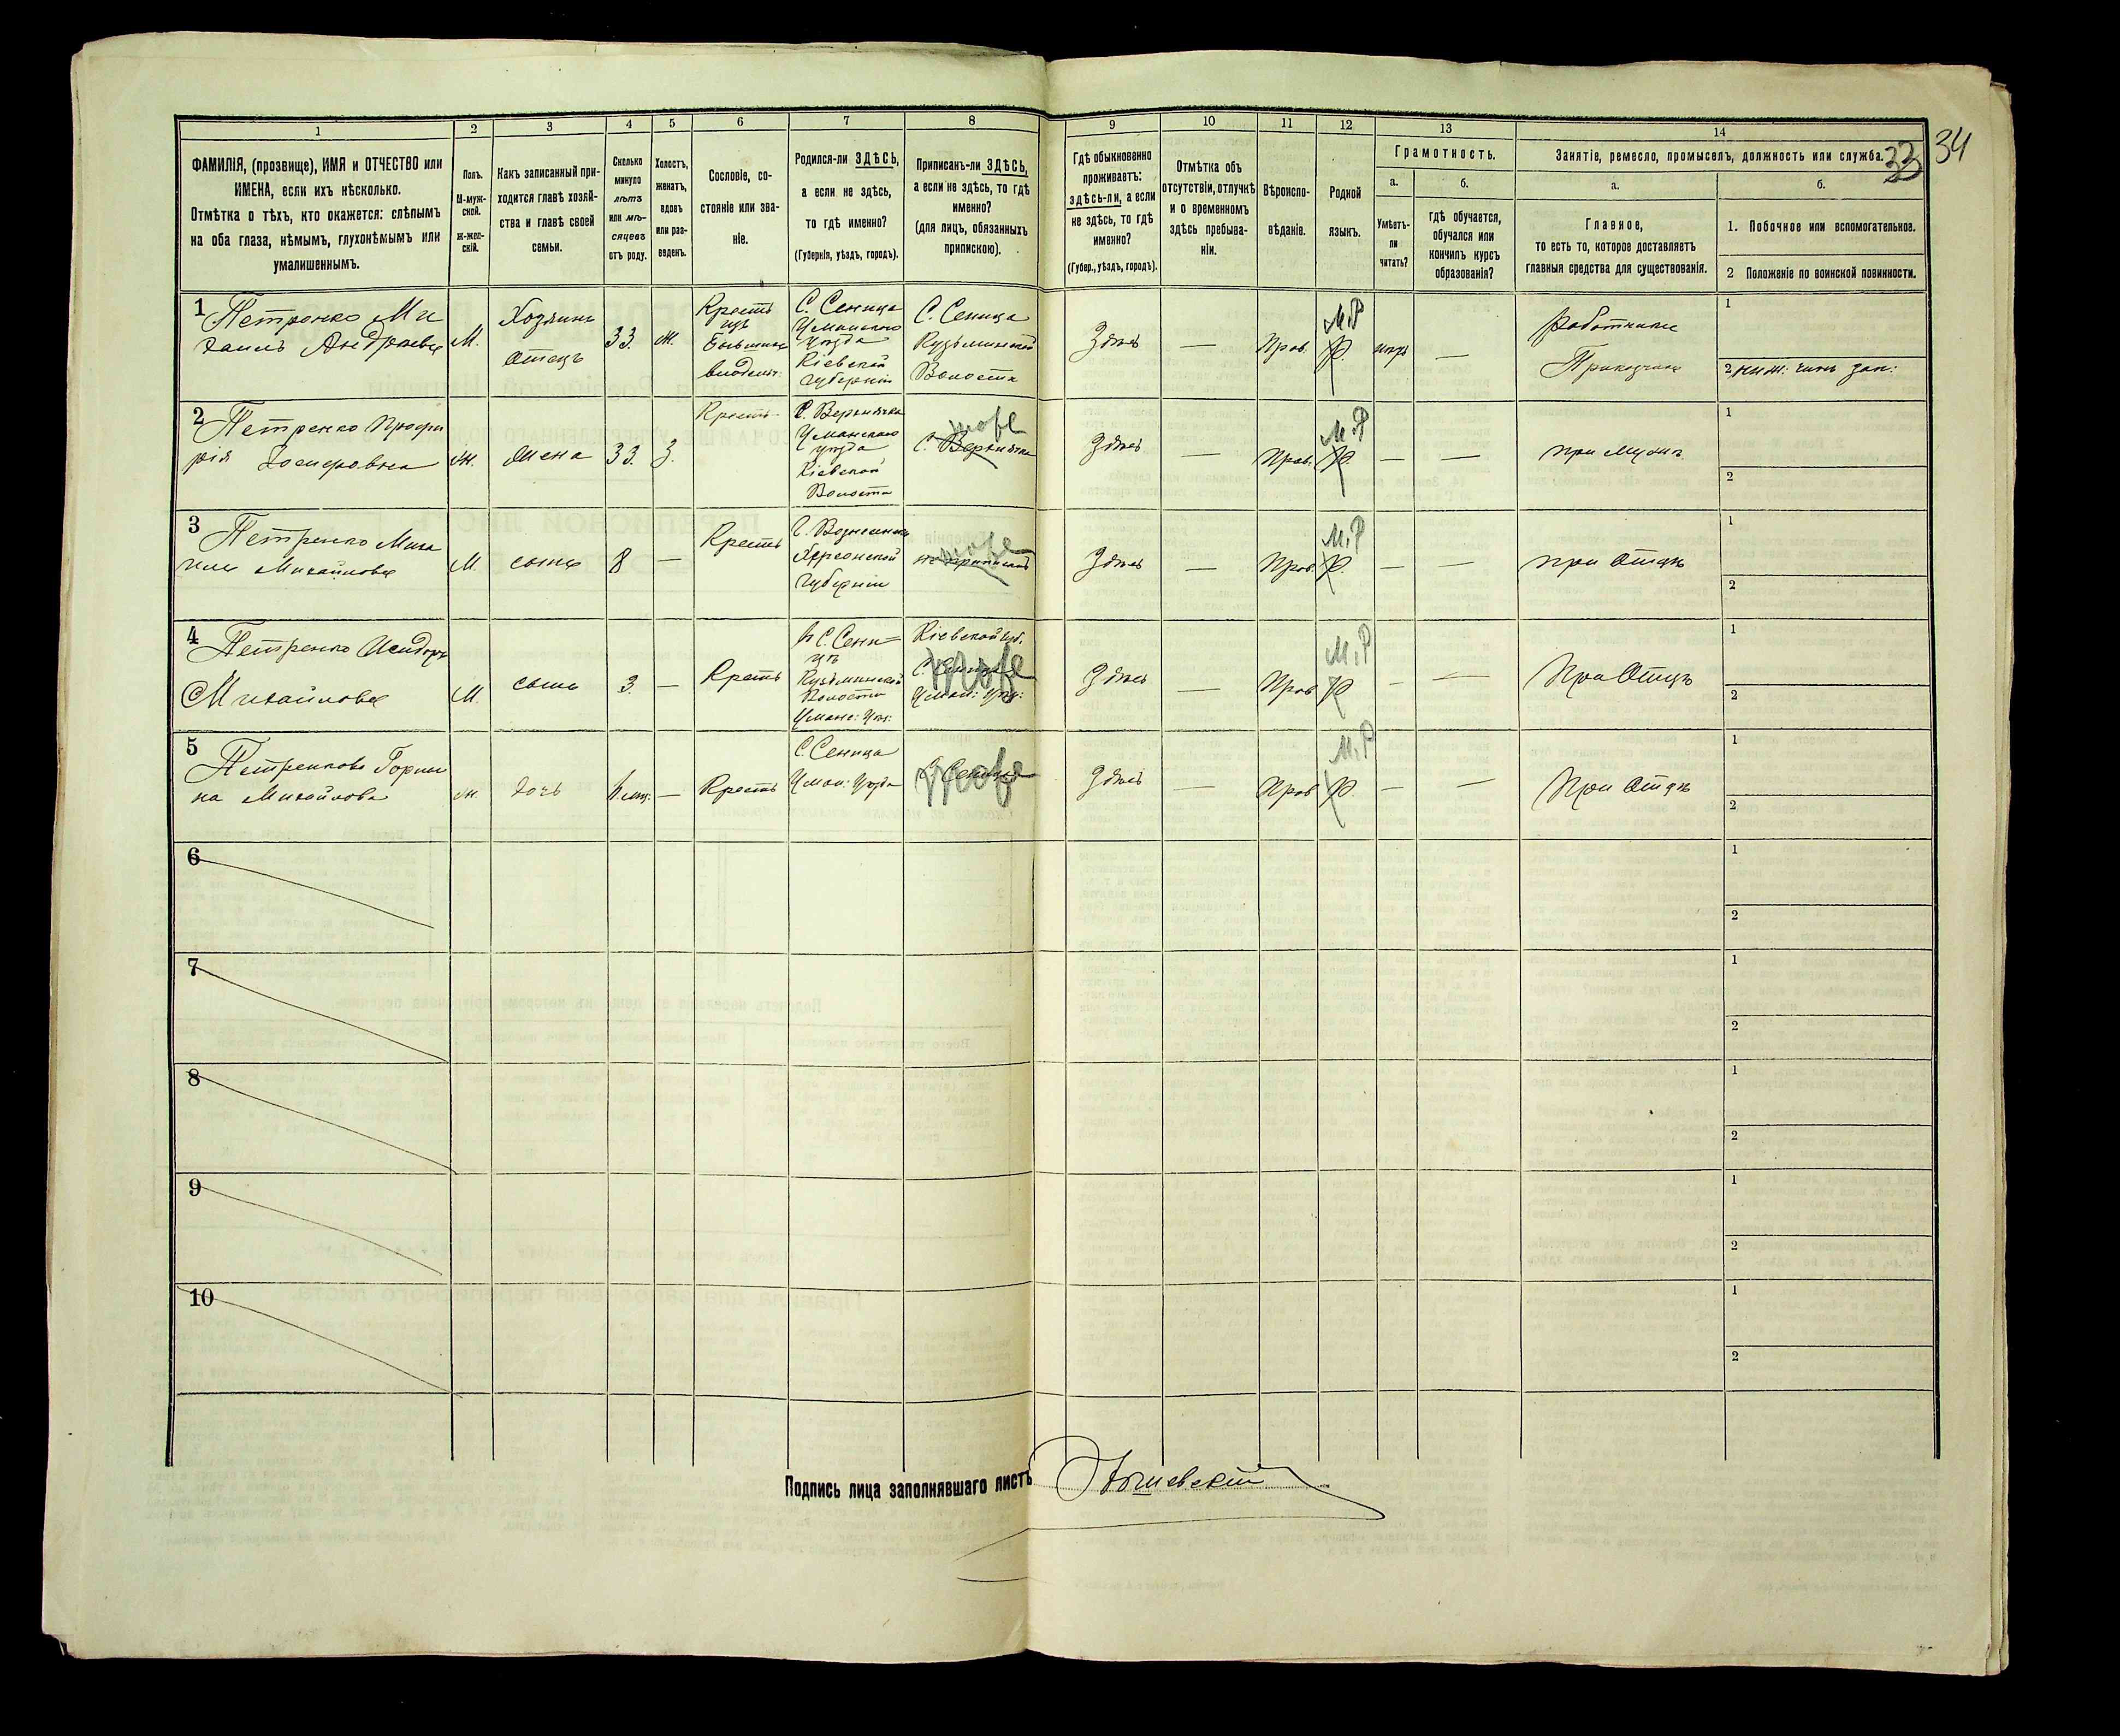 34
33
1
2
3
4
5
6
7
8
9
10
11
12
13
14
ФАМИЛІЯ, (прозвище), ИМЯ и ОТЧЕСТВО или
ИМЕНА, если ихъ нѣсколько.
Отмѣтка о тѣхъ, кто окажется: слѣпымъ
на оба глаза, нѣмымъ, глухонѣмымъ или
умалишеннымъ.
Полъ.
М-муж-
ской.
Ж-жен-
скій.
Какъ записанный при-
ходится главѣ хозяй-
ства и главѣ своей
семьи.
Сколько
минуло
лѣтъ
или мѣ-
сяцевъ
отъ роду.
Холостъ,
женатъ,
вдовъ
или раз-
веденъ.
Сословіе, со-
стояніе или зва-
ніе.
Родился-ли ЗДѢСЬ,
а если не здѣсь,
то гдѣ именно?
(Губернія, уѣздъ, городъ).
Приписанъ-ли ЗДѢСЬ,
а если не здѣсь, то гдѣ
именно?
(для лицъ, обязанныхъ
припискою).
Гдѣ обыкновенно
проживаетъ:
здѣсь-ли, а если
не здѣсь, то гдѣ
именно?
(Губер., уѣздъ, городъ).
Отмѣтка объ
отсутствіи, отлучкѣ
и о временномъ
здѣсь пребыва-
ніи.
Вѣроиспо-
вѣданіе.
Родной
языкъ.
Грамотность.
а.
Умѣетъ-
ли
читать?
б.
гдѣ обучается,
обучался или
кончилъ курсъ
образованія?
Занятіе, ремесло, промыселъ, должность или служба.
а.
Главное,
то есть то, которое доставляетъ
главныя средства для существованія.
б.
1. Побочное или вспомогательное.
2 Положеніе по воинской повинности.
1
Петренко Ми
хаилъ Андреевъ
М.
Хозяинъ
Отецъ
33
Ж.
Крестъ
изъ
С. Сеница
Уманскаго
уѣзда
Кіевской
Губерніи
С. Сеница
Кузьминской
Волости
Здѣсь
—
Прав.
М.Р
Р.
—
Работникъ
1
2 ниж: чинъ зап:
2
Петренко Профи
рія
Ж.
Жена
33.
З.
Крест
С. Верхнячка
Уманскаго
уѣзда
Кіевской
Волости
тоже
С. Верхнячка
Здѣсь
—
Прав.
М.Р
Р.
—
—
при мужѣ
1
2
3
Петренко Миха
илъ Михайловъ
М.
сынъ
8
—
Крестъ
Херсонской
Губерніи
тоже
Здѣсь
—
Прав.
М.Р
Р.
—
—
при Отцѣ
1
2
4
Петренко Исидоръ
Михайловъ
М.
сынъ
3.
—
Крестъ
въ С. Сени=
цѣ
Кузьминской
Волости
Уманс: Уѣз:
Кіевской губ.
тоже
Уман: Уѣз:
Здѣсь
—
Прав
М.Р
Р.
—
—
При Отцѣ
1
2
5
Петренкова Горпи
на Михайлова
ж.
дочь
—
Крестъ
С. Сеница
Уман: Уѣзда
С. Сеница
тоже
Здѣсь
—
Прав
М.Р
Р.
—
—
При Отцѣ
1
2
6
1
2
7
1
2
8
1
2
9
1
2
10
1
2
Подпись лица заполнявшаго листъ